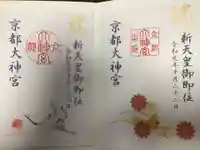 新天皇御即位
令和元年十月二十二日
京都大神宮
新天皇御即位
京都大神宮